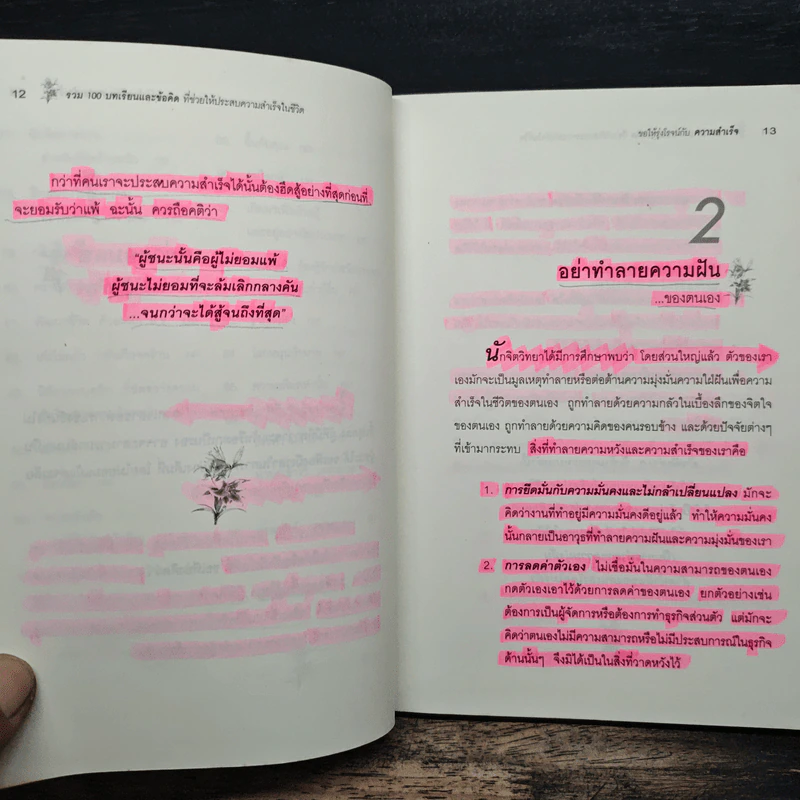 12
รวม 100 บทเรียนและข้อคิด ที่ช่วยให้ประสบความสำเร็จในชีวิต
กว่าที่คนเราจะประสบความสำเร็จได้นั้นต้องฮึดสู้อย่างที่สุดก่อนที่
จะยอมรับว่าแพ้ ฉะนั้น ควรถือคติว่า
"ผู้ชนะนั้นคือผู้ไม่ยอมแพ้
ผู้ชนะไม่ยอมที่จะล้มเลิกกลางคัน
...จนกว่าจะได้สู้จนถึงที่สุด"
ขอให้รุ่งโรจน์กับ ความสำเร็จ 13
2
อย่าทำลายความฝัน
...ของตนเอง
นักจิตวิทยาได้มีการศึกษาพบว่า โดยส่วนใหญ่แล้ว ตัวของเรา
เองมักจะเป็นมูลเหตุทำลายหรือต่อต้านความมุ่งมั่นความใฝ่ฝันเพื่อความ
สำเร็จในชีวิตของตนเอง ถูกทำลายด้วยความกลัวในเบื้องลึกของจิตใจ
ของตนเอง ถูกทำลายด้วยความคิดของคนรอบข้าง และด้วยปัจจัยต่างๆ
ที่เข้ามากระทบ สิ่งที่ทำลายความหวังและความสำเร็จของเราคือ
1. การยึดมั่นกับความมั่นคงและไม่กล้าเปลี่ยนแปลง มักจะ
คิดว่างานที่ทำอยู่มีความมั่นคงดีอยู่แล้ว ทำให้ความมั่นคง
นั้นกลายเป็นอาวุธที่ทำลายความฝันและความมุ่งมั่นของเรา
2. การลดค่าตัวเอง ไม่เชื่อมั่นในความสามารถของตนเอง
กดตัวเองเอาไว้ด้วยการลดค่าของตนเอง ยกตัวอย่างเช่น
ต้องการเป็นผู้จัดการหรือต้องการทำธุรกิจส่วนตัว แต่มักจะ
คิดว่าตนเองไม่มีความสามารถหรือไม่มีประสบการณ์ในธุรกิจ
ด้านนั้นๆ จึงมิได้เป็นในสิ่งที่วาดหวังไว้